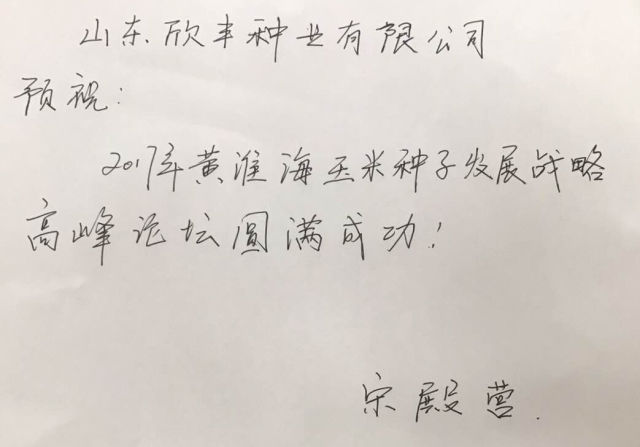 山东欣丰种业有限公司
预祝:
2017年黄淮海玉米种子发展战略
高峰论坛圆满成功!
宋殿营.